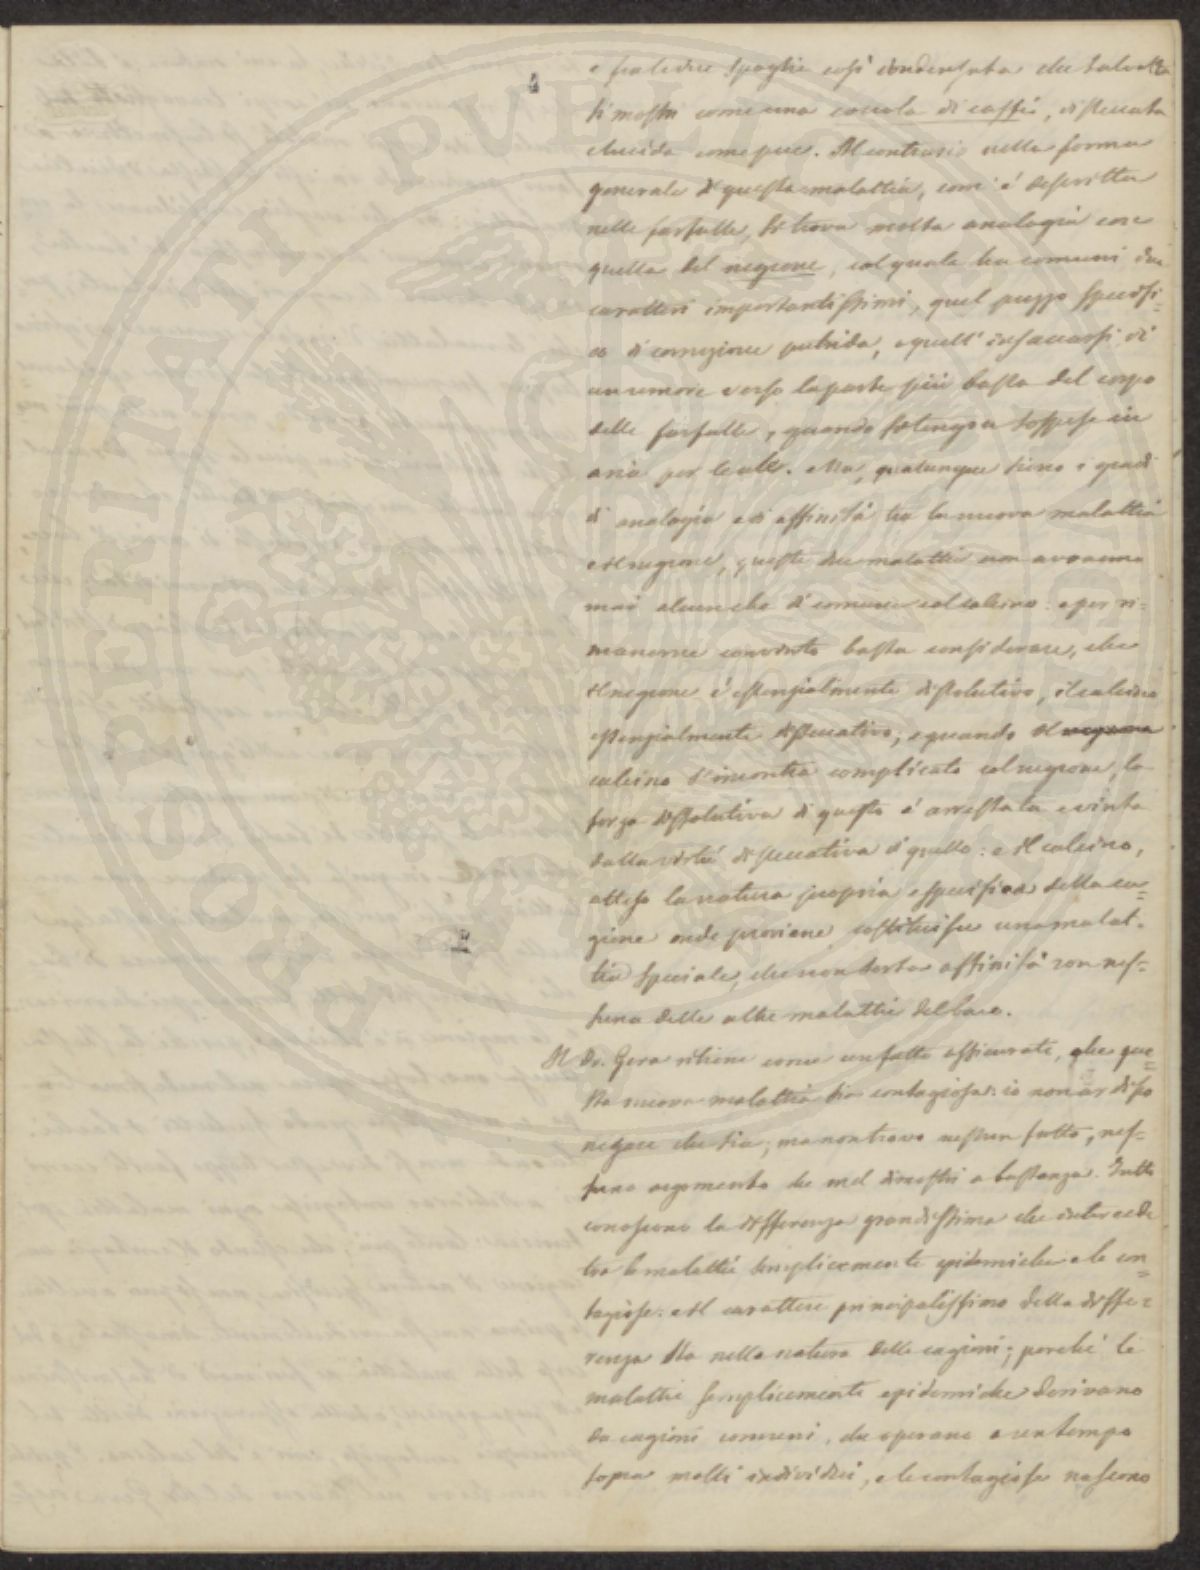 e fra le due spoglie così condensata che talvolta
si mostra come una coccola di caffè, disseccata
e lucida come pece. Al contrario nella forma
generale di questa malattia, com'è descritta
nelle farfalle, si trova molta analogia con
quella del negrone, col quale ha comuni due
caratteri importantissimi, quel puzzo specifi=
co di corruzione putrida, e quell'insaccarsi di
un umore verso la parte più bassa del corpo
delle farfalle, quando si tengon sospese in
aria per le ale. Ma, qualunque sieno i gradi
di analogia e di affinità tra la nuova malattia
e il negrone, queste due malattie non avranno
mai alcun che di comune col calcino: e per ri=
manerne convinto basta considerare, che
il negrone è essenzialmente dissolutivo, il calcino
essenzialmente disseccativo; e quando il negrone
calcino s'incontra complicato col negrone, la
forza dissolutiva di questo è arrestata e vinta
dalla virtù disseccativa di quello: e il calcino,
attesa la natura propria e specifica della ca=
gione onde proviene, costituisce una malat=
tia speciale, che non serba affinità con nes=
suna delle altre malattie del baco.
Il Dr. Gera ritiene come un fatto assicurato, che que=
sta nuova malattia sia contagiosa: io non ardisco
negare che sia; ma non trovo nessun fatto, nes=
suno argomento che mel dimostri a bastanza. Tutti
conoscono la differenza grandissima che intercede
tra le malattie semplicemente epidemiche e le con=
tagiose: e il carattere principalissimo della diffe=
renza sta nella natura delle cagioni; perchè le
malattie semplicemente epidemiche derivano
da cagioni comuni, che operano a un tempo
sopra molti individui, e le contagiose nascono
PROSPERITATI PVBLICAE